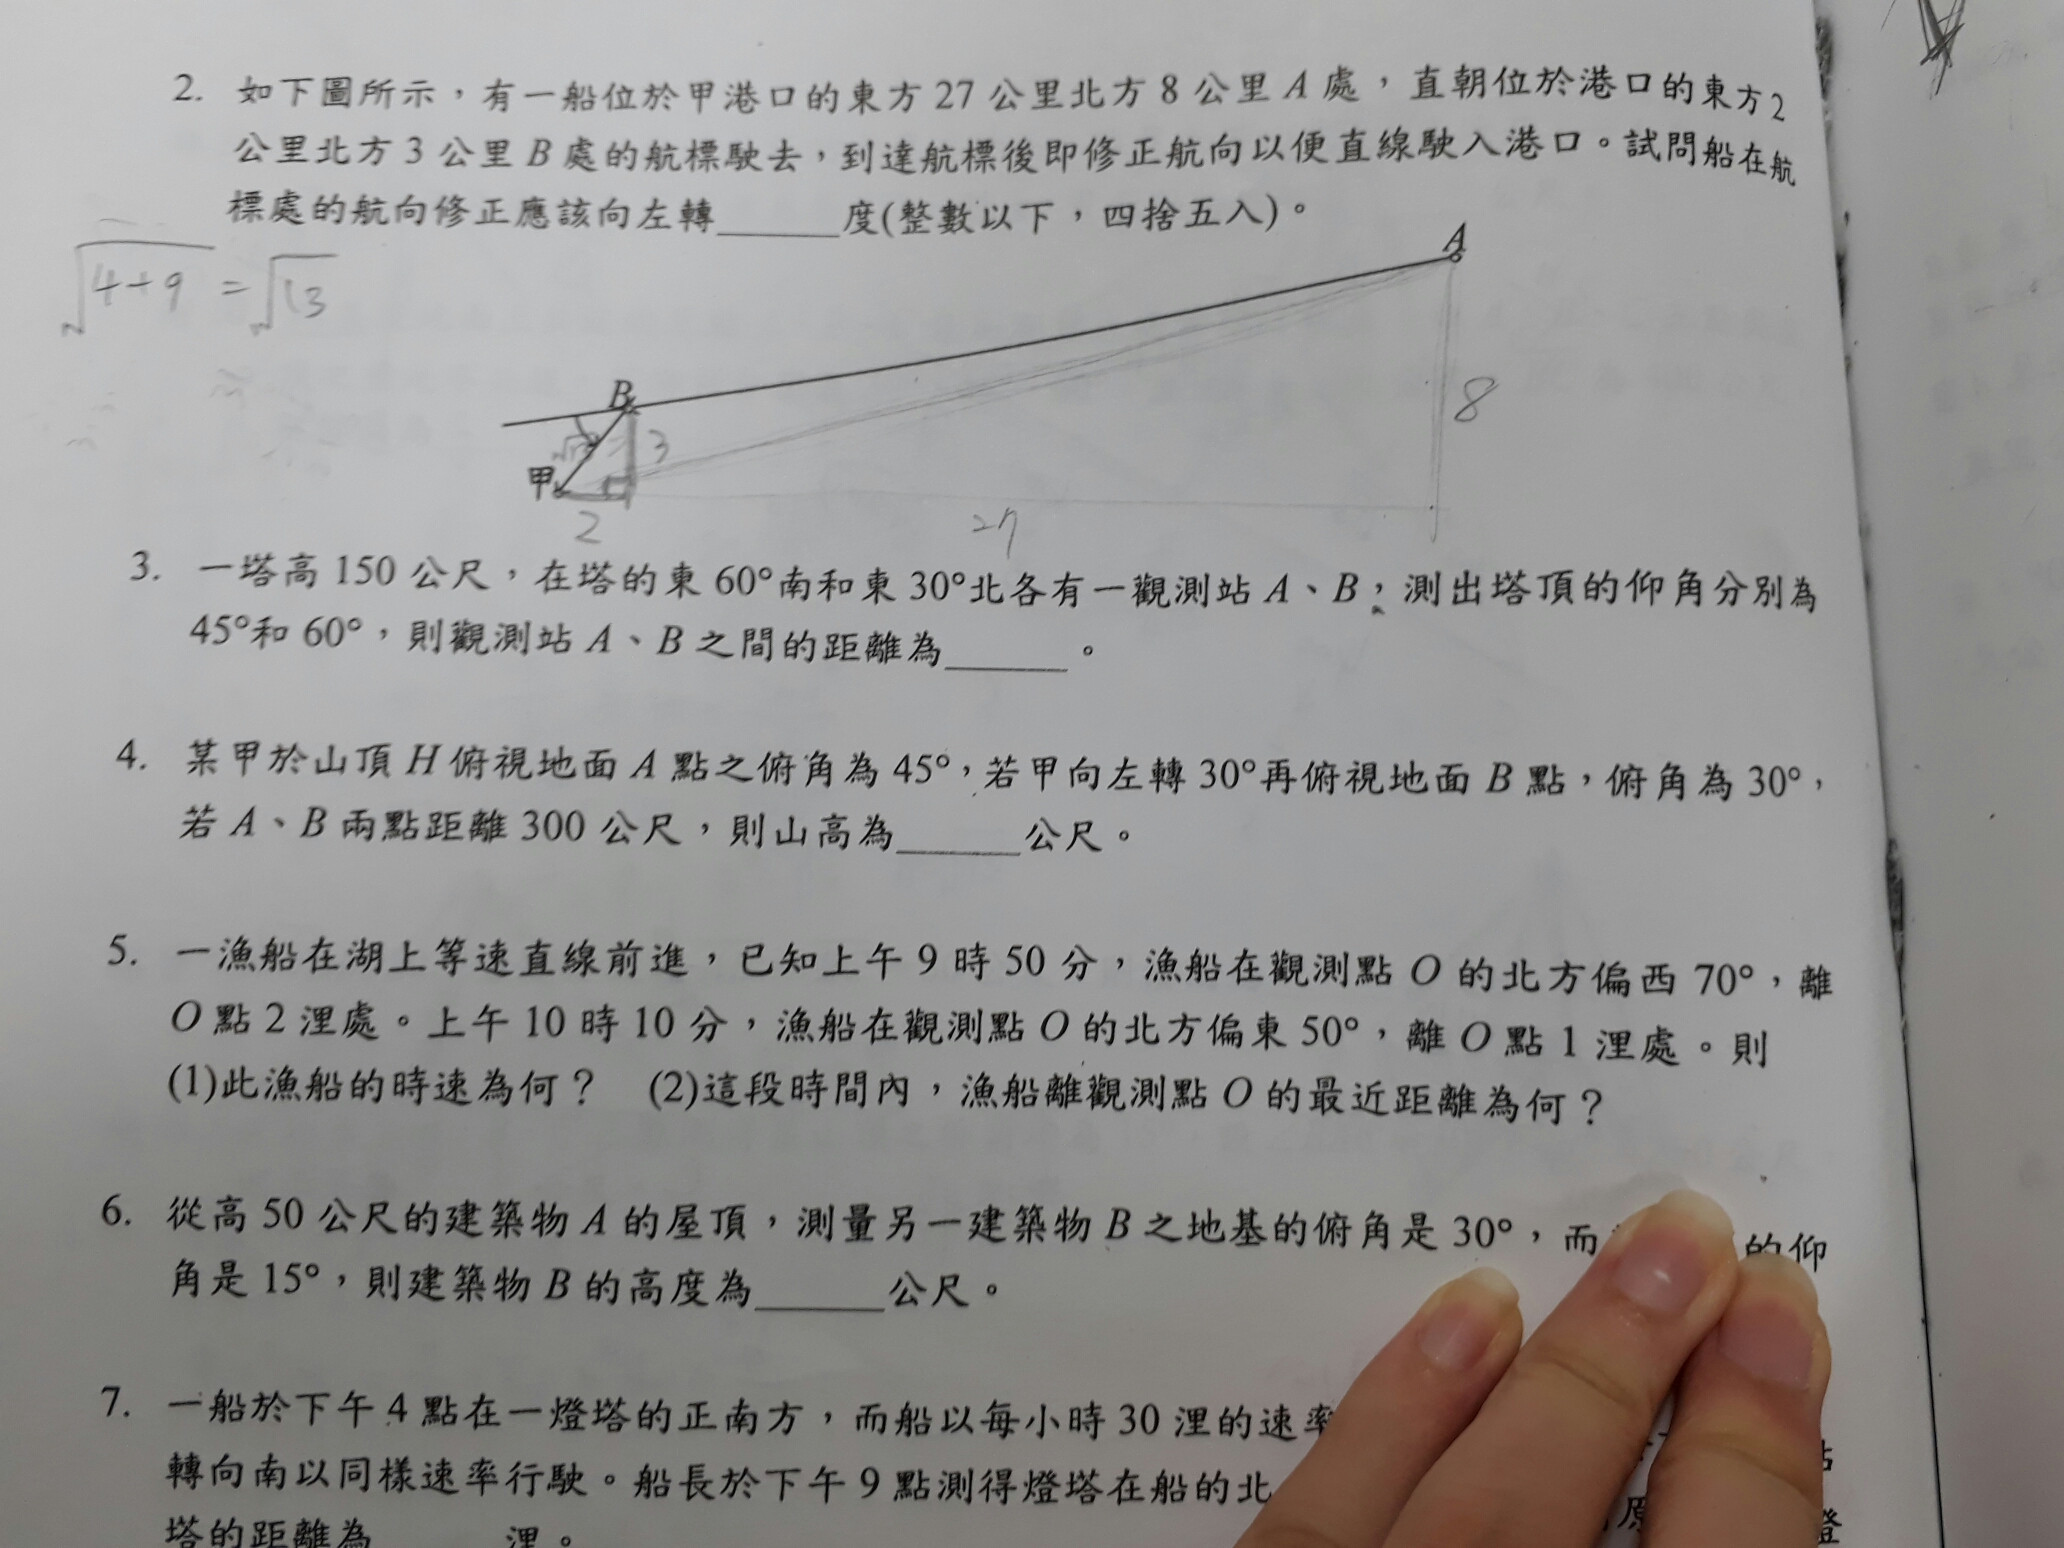 2. 如下圖所示，有一船位於甲港口的東方 27 公里北方 8 公里 A 處，直朝位於港口的東方 2
公里北方 3 公里 B 處的航標駛去，到達航標後即修正航向以便直線駛入港口。試問船在航
標處的航向修正應該向左轉______度(整數以下，四捨五入)。
√4+9 = √13
A
B
8
3
甲
2
27
3. 一塔高 150 公尺，在塔的東 60°南和東 30°北各有一觀測站 A、B，測出塔頂的仰角分別為
45°和 60°，則觀測站 A、B 之間的距離為______。
4. 某甲於山頂 H 俯視地面 A 點之俯角為 45°，若甲向左轉 30°再俯視地面 B 點，俯角為 30°，
若 A、B 兩點距離 300 公尺，則山高為______公尺。
5. 一漁船在湖上等速直線前進，已知上午 9 時 50 分，漁船在觀測點 O 的北方偏西 70°，離
O 點 2 浬處。上午 10 時 10 分，漁船在觀測點 O 的北方偏東 50°，離 O 點 1 浬處。則
(1)此漁船的時速為何？ (2)這段時間內，漁船離觀測點 O 的最近距離為何？
6. 從高 50 公尺的建築物 A 的屋頂，測量另一建築物 B 之地基的俯角是 30°，而 的仰
角是 15°，則建築物 B 的高度為______公尺。
7. 一船於下午 4 點在一燈塔的正南方，而船以每小時 30 浬的速率
轉向南以同樣速率行駛。船長於下午 9 點測得燈塔在船的北 原
塔的距離為______浬。